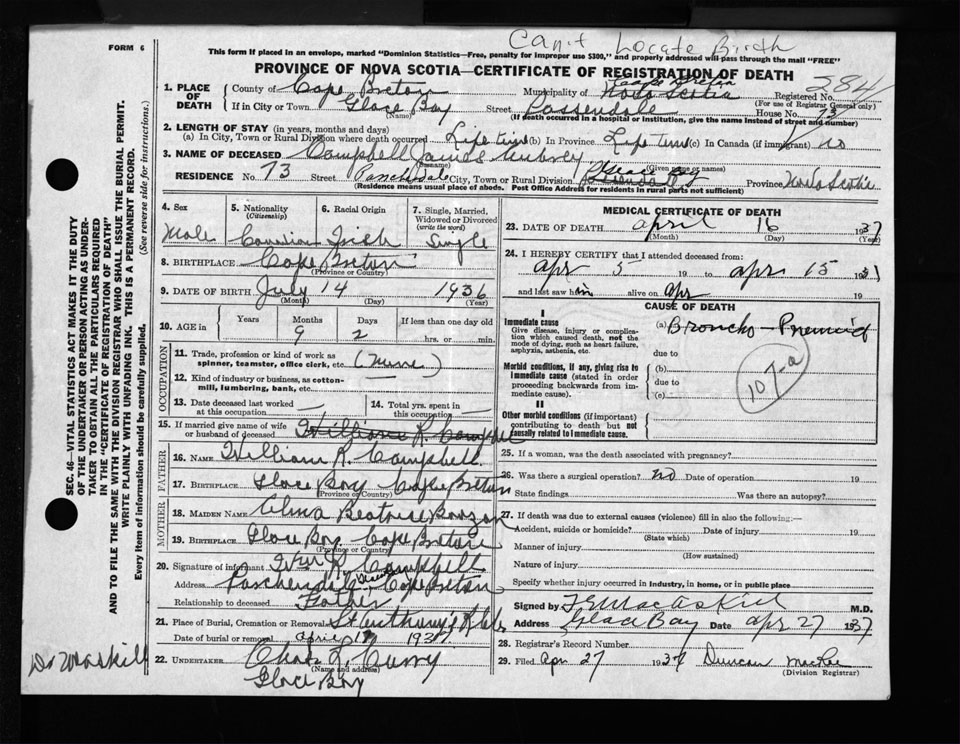 FORM 6
Can't Locate Birth
This form if placed in an envelope, marked "Dominion Statistics—Free, penalty for improper use $300," and properly addressed will pass through the mail "FREE"
PROVINCE OF NOVA SCOTIA—CERTIFICATE OF REGISTRATION OF DEATH
284
1. PLACE OF DEATH County of Cape Breton Municipality of Cape Breton Nova Scotia Registered No.
(For use of Registrar General only)
If in City or Town Glace Bay Street Passendale House No. 73
(Name) (If death occurred in a hospital or institution, give the name instead of street and number)
2. LENGTH OF STAY (in years, months and days)
(a) In City, Town or Rural Division where death occurred Life time (b) In Province Life time (c) In Canada (if immigrant) no
3. NAME OF DECEASED Campbell James
(Surname) (Given name or names)
RESIDENCE No. 73 Street Paschendale City, Town or Rural Division Province Nova Scotia
(Residence means usual place of abode. Post Office Address for residents in rural parts not sufficient)
4. Sex Male
5. Nationality (Citizenship) Canadian
6. Racial Origin Irish
7. Single, Married, Widowed or Divorced (write the word) Single
8. BIRTHPLACE Cape Breton
(Province or Country)
9. DATE OF BIRTH July 14 1936
(Month) (Day) (Year)
10. AGE in Years Months 9 Days 2 If less than one day old hrs. or min.
OCCUPATION
11. Trade, profession or kind of work as spinner, teamster, office clerk, etc. (None)
12. Kind of industry or business, as cotton-mill, lumbering, bank, etc. —
13. Date deceased last worked at this occupation —
14. Total yrs. spent in this occupation —
15. If married give name of wife or husband of deceased William R. Campbell
FATHER
16. NAME William R. Campbell
17. BIRTHPLACE Glace Bay Cape Breton
(Province or Country)
MOTHER
18. MAIDEN NAME Alma Beatrice
19. BIRTHPLACE Glace Bay Cape Breton
(Province or Country)
20. Signature of informant Wm R. Campbell
Address Paschendale Cape Breton
Relationship to deceased Father
21. Place of Burial, Cremation or Removal St Anthony's
Date of burial or removal april 17 1937
22. UNDERTAKER Chas. L. Curry
(Name and address)
Glace Bay
MEDICAL CERTIFICATE OF DEATH
23. DATE OF DEATH april 16 1937
(Month) (Day) (Year)
24. I HEREBY CERTIFY that I attended deceased from:
apr 5 19 to apr 15 1937
and last saw him alive on apr 19
CAUSE OF DEATH
I
Immediate cause
Give disease, injury or complication which caused death, not the mode of dying, such as heart failure, asphyxia, asthenia, etc.
(a) Broncho-Pneumonia
due to
Morbid conditions, if any, giving rise to immediate cause (stated in order proceeding backwards from immediate cause).
(b)
due to
(c)
107-a
II
Other morbid conditions (if important) contributing to death but not causally related to immediate cause.
25. If a woman, was the death associated with pregnancy?
26. Was there a surgical operation? no Date of operation 19
State findings Was there an autopsy?
27. If death was due to external causes (violence) fill in also the following:—
Accident, suicide or homicide? Date of injury 19
(State which)
Manner of injury
(How sustained)
Nature of injury
Specify whether injury occurred in industry, in home, or in public place
Signed by MacAskill M.D.
Address Glace Bay Date apr 27 1937
28. Registrar's Record Number
29. Filed Apr 27 1937 Duncan MacRae
(Division Registrar)
SEC. 46—VITAL STATISTICS ACT MAKES IT THE DUTY OF THE UNDERTAKER OR PERSON ACTING AS UNDERTAKER TO OBTAIN ALL THE PARTICULARS REQUIRED IN THE "CERTIFICATE OF REGISTRATION OF DEATH" AND TO FILE THE SAME WITH THE DIVISION REGISTRAR WHO SHALL ISSUE THE BURIAL PERMIT.
WRITE PLAINLY WITH UNFADING INK. THIS IS A PERMANENT RECORD.
Every item of information should be carefully supplied. (See reverse side for instructions.)